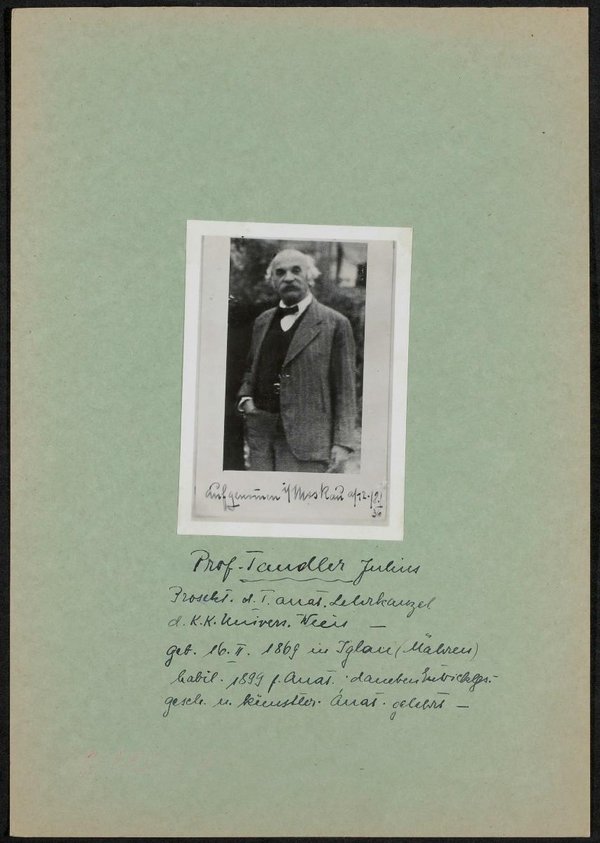 Aufgenommen i/ Moskau a/12./8. 36
Prof. Tandler Julius
Prosekt. d. I. anat. Lehrkanzel
d. K.K. Univers. Wien —
geb. 16. II. 1869 in Iglau (Mähren)
habil. 1899 f. Anat. daneben Entwicklgs.-
gesch. u. künstler. Anat. gelehrt —